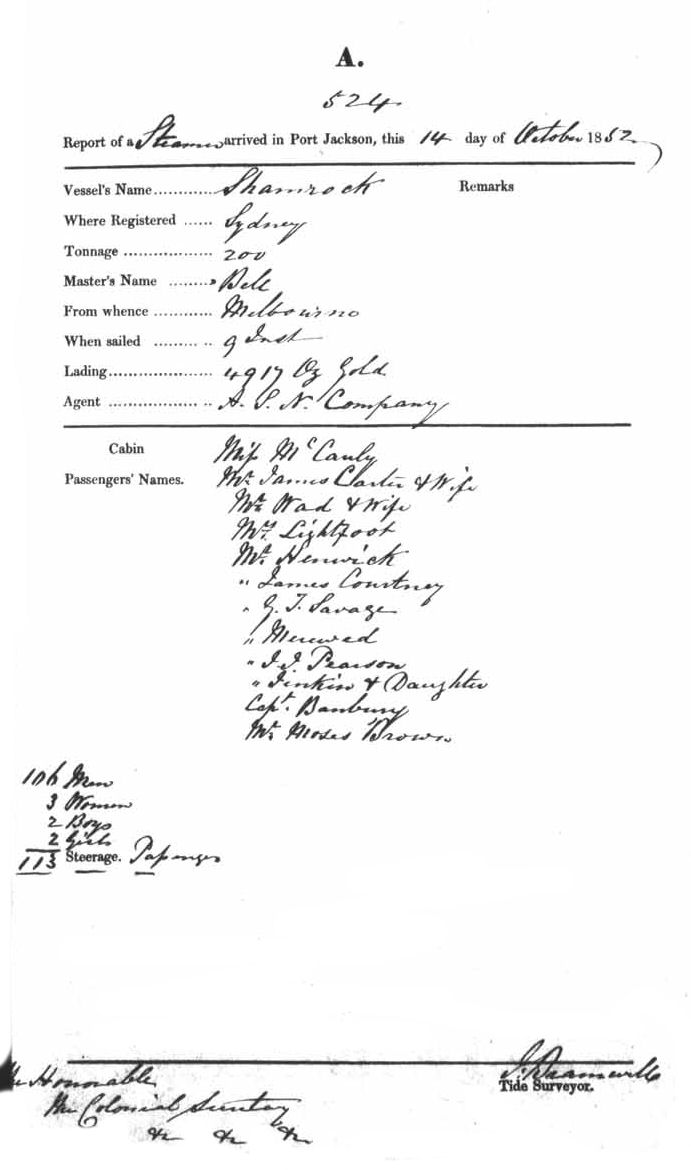 A.
524
Report of a Steamer arrived in Port Jackson, this 14 day of October 1852
Vessel's Name............ Shamrock Remarks
Where Registered ...... Sydney
Tonnage .................. 200
Master's Name ........ Bell
From whence ............ Melbourne
When sailed ......... .. 9 Inst
Lading..................... 4917 Oz Gold
Agent .................. .. A. S. N. Company
Cabin Miss McCauly
Passengers' Names. Mr. James Carter & Wife
Mr. Wad & Wife
Lightfoot
Mr. Henwick
" James Courtney
" G. T. Savage
"
" J. J. Pearson
" Jenkin & Daughter
Capt. Banbury
Mr. Moses Brown
106 Men
3 Women
2 Boys
2 Girls
113 Steerage. Passengers
The Honorable
the Colonial
&c &c &c
Tide Surveyor.